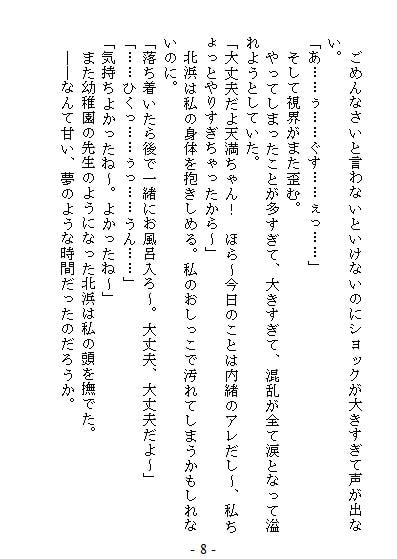 ごめんなさいと言わないといけないのにショックが大きすぎて声が出な
い。
「あ……ぅ……ぐす……ぇっ……」
そして視界がまた歪む。
やってしまったことが多すぎて、大きすぎて、混乱が全て涙となって溢
れようとしていた。
「大丈夫だよ天満ちゃん！　ほら～今日のことは内緒のアレだし～、私ち
ょっとやりすぎちゃったから～」
北浜は私の身体を抱きしめる。私のおしっこで汚れてしまうかもしれな
いのに。
「落ち着いたら後で一緒にお風呂入ろ～。大丈夫、大丈夫だよ～」
「……ひくっ……ぅっ……うん……」
「気持ちよかったね～。よかったね～」
また幼稚園の先生のようになった北浜は私の頭を撫でた。
――なんて甘い、夢のような時間だったのだろうか。
- 8 -